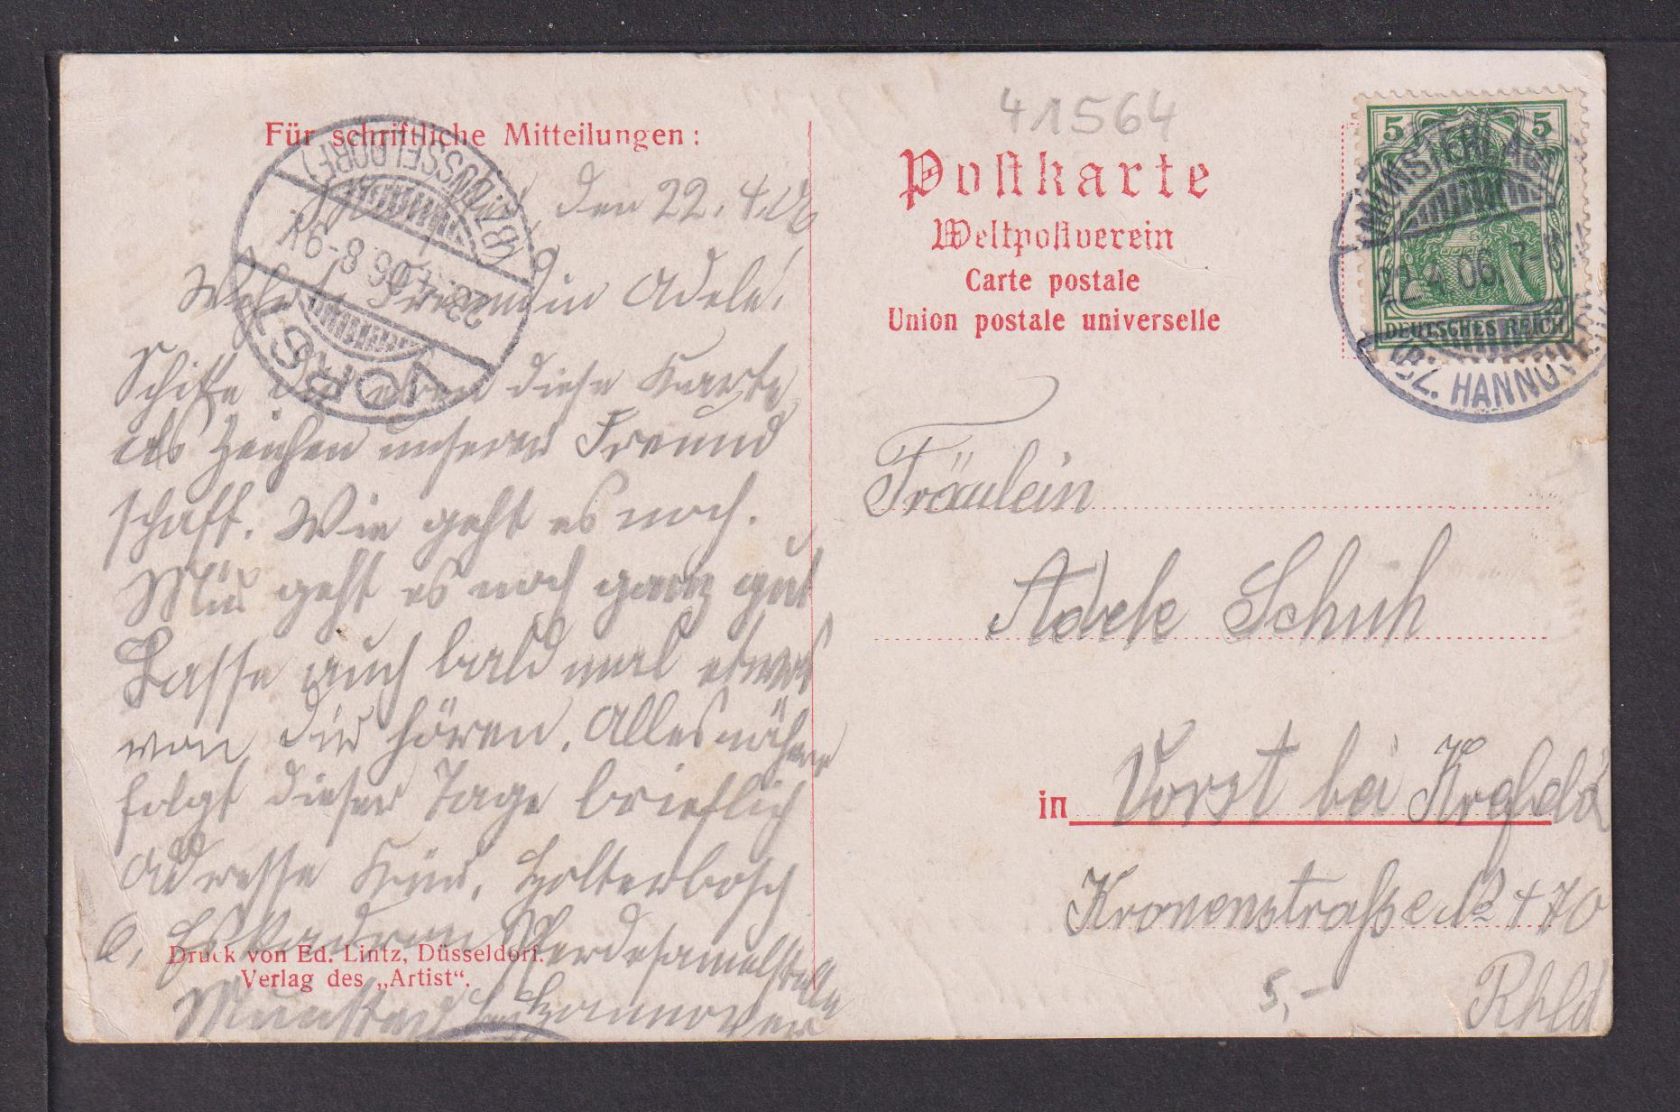 Für schriftliche Mitteilungen:
den 22. 4. 06
Freundin Adele!
Schicke dir eben diese Karte
als Zeichen unserer Freund
schaft. Wie geht es noch.
Mir geht es noch ganz gut
Lasse auch bald mal etwas
von dir hören. Alles nähere
folgt dieser Tage brieflich
Adresse Kür. Holterbosch
6. Eskadron Pferdesamelstelle
Hannover
Druck von Ed. Lintz, Düsseldorf.
Verlag des „Artist“.
(BZ. DÜSSELDORF)
23.4.06. 8-9V.
VORST
41564
Postkarte
Weltpostverein
Carte postale
Union postale universelle
5 5
DEUTSCHES REICH
MUNSTERLAGER
22.4.06. 7-8
(BZ. HANNOVER)
Fräulein
Adele Schuh
in Vorst bei Krefeld
Kronenstraße No 470
Rhld
5,-